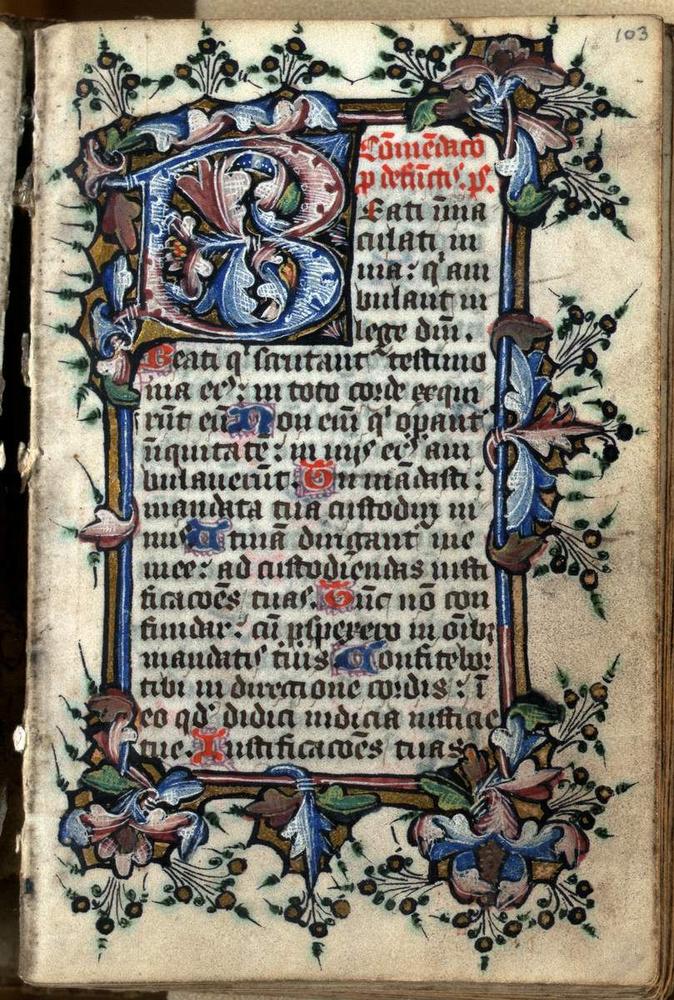 103
Cōmēdacō
p defūctis. ps.
Eati īma
culati in
uia: q̄ am
bulant in
lege dn̄i.
Beati qͥ scrutant᷑ testimo
nia eꝰ: in toto corde exqui
rūt eū Non eni qͥ oꝑant᷑
iniquitatē: in uijs eiꝰ am
bulauerūt. Tu mādasti:
mandata tua custodiri ni
mis Utinā dirigant᷑ uie
mee: ad custodiendas iusti
ficacōēs tuas. Tūc nō con
fundar: cū ꝑspexero in ōib;
mandatis tuis Confitebor
tibi in directione cordis: ī
eo qd̕ didici iudicia iusticie
tue. Iustificacōēs tuas